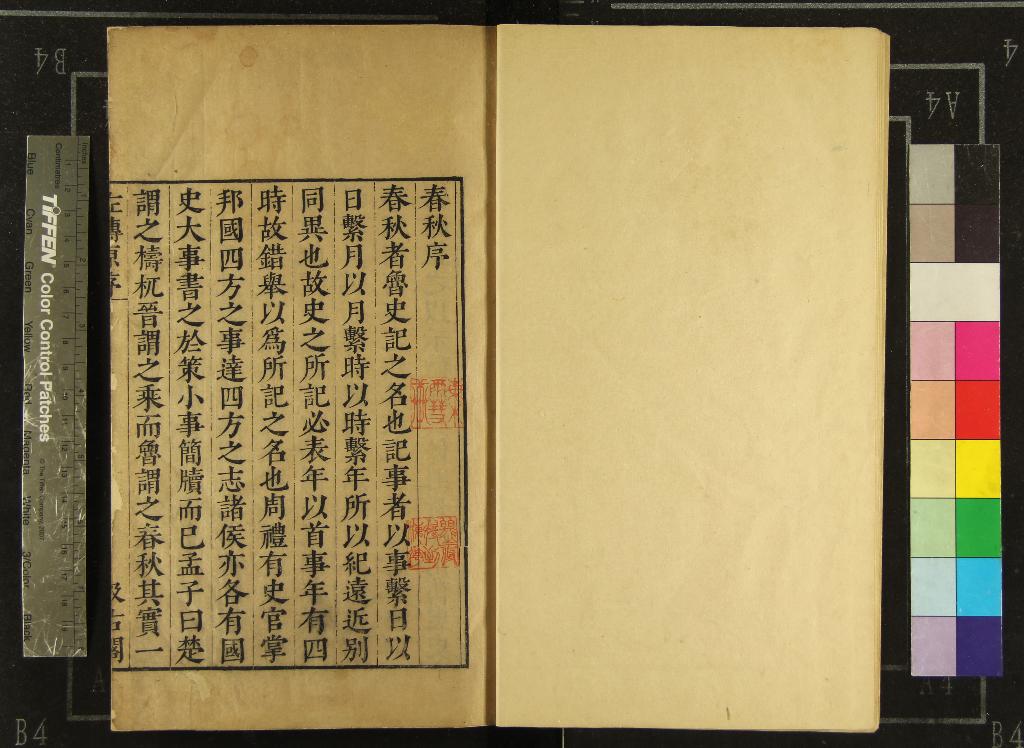 春秋序
春秋者魯史記之名也記事者以事繫日以
日繫月以月繫時以時繫年所以紀遠近別
同異也故史之所記必表年以首事年有四
時故錯舉以爲所記之名也周禮有史官掌
邦國四方之事達四方之志諸侯亦各有國
史大事書之於策小事簡牘而已孟子曰楚
謂之檮杌晉謂之乘而魯謂之春秋其實一
左傳原序
汲古閣
B4
A4
B4
A4
B4
Inches
Centimetres
TIFFEN Color Control Patches
© The Tiffen Company, 2007
Blue
Cyan
Green
Yellow
Red
Magenta
White
3/Color
Black